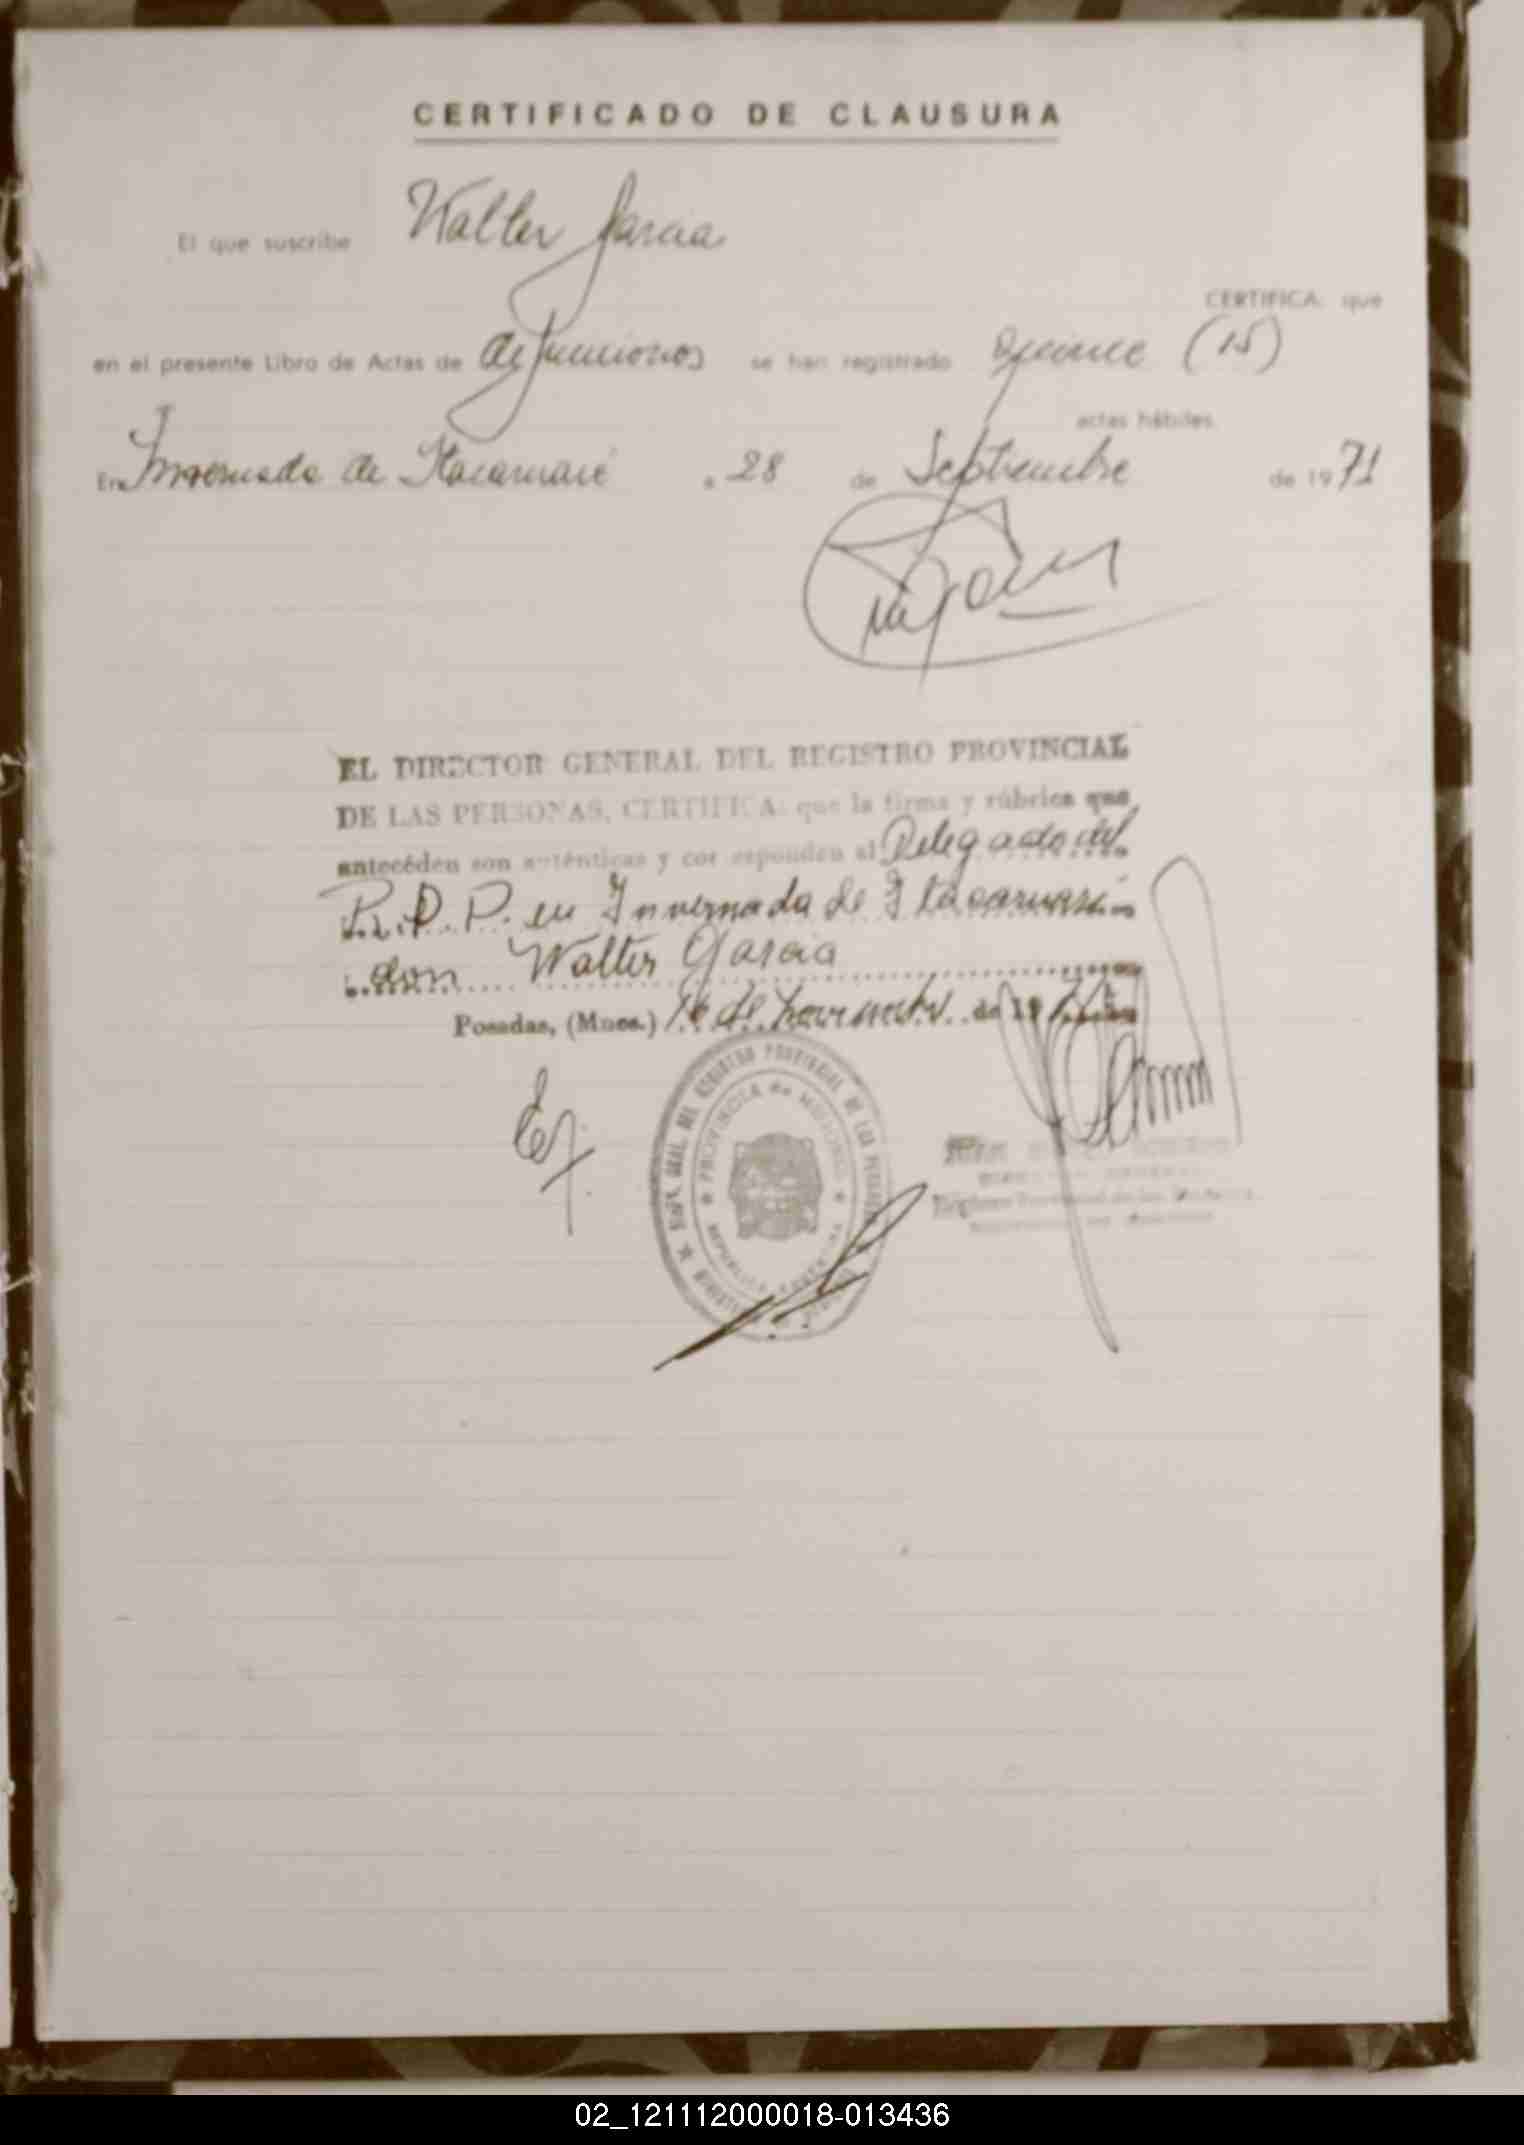 CERTIFICADO DE CLAUSURA
El que suscribe Walter Garcia
CERTIFICA: que
en el presente Libro de Actas de defunciones se han registrado Quince (15)
actas hábiles.
En Invernada de Itacaruaré a 28 de Septiembre de 1971
EL DIRECTOR GENERAL DEL REGISTRO PROVINCIAL
DE LAS PERSONAS, CERTIFICA: que la firma y rúbrica que
antecéden son auténticas y corresponden al Delegado del
R. P. P. en Invernada de Itacaruaré
don Walter Garcia
Posadas, (Mnes.) 16 de noviembre de 19
REGISTRO PROVINCIAL DE LAS
PROVINCIA de MISIONES
REPUBLICA ARGENTINA
02_121112000018-013436